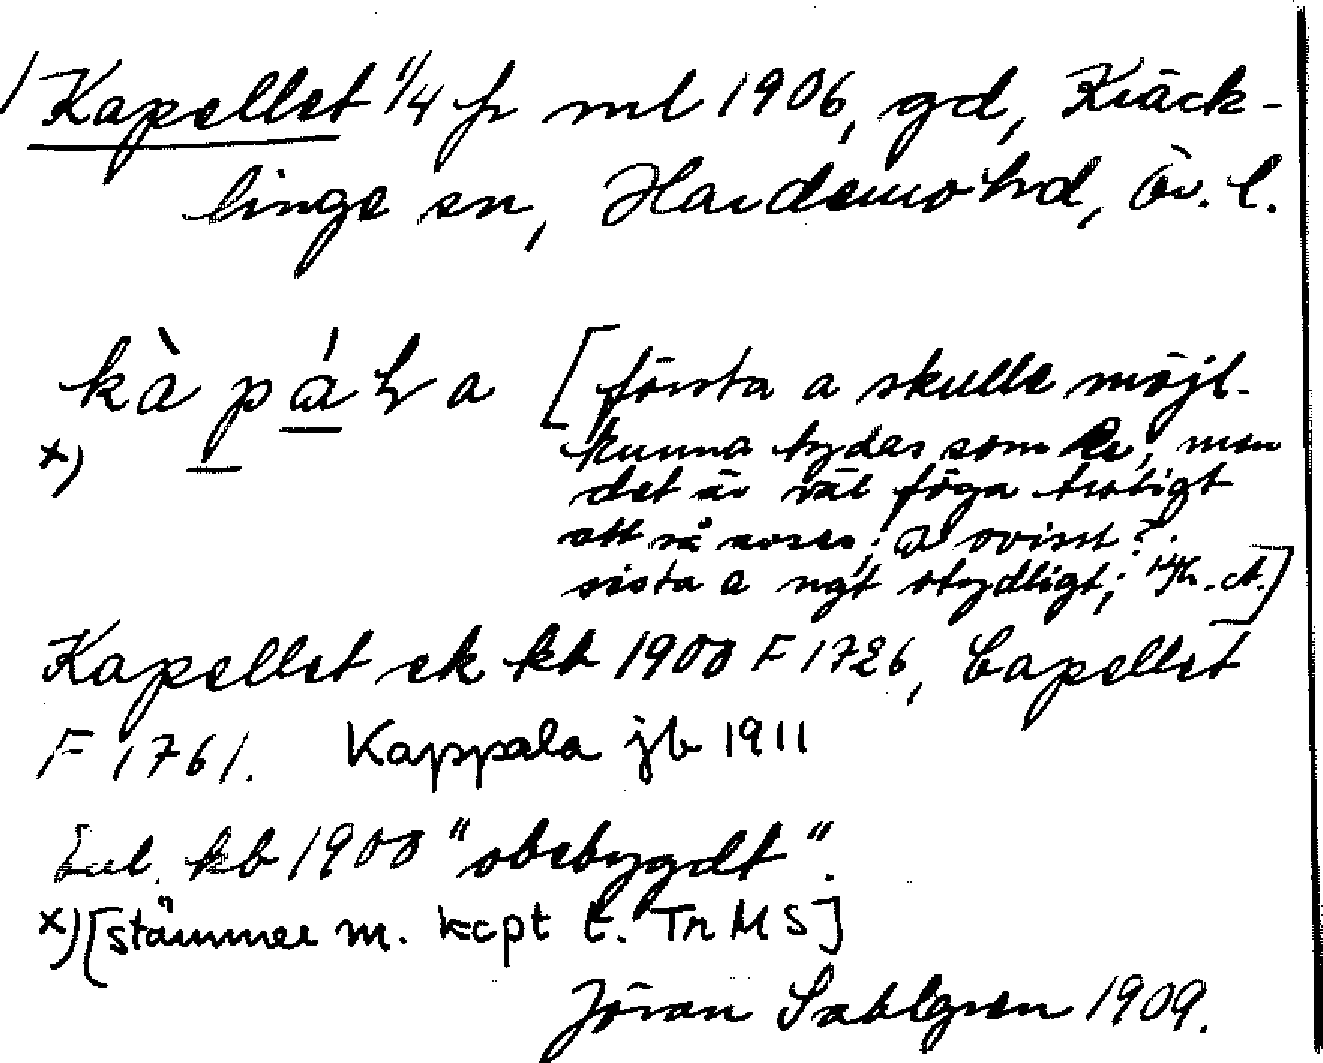 Kapellet 1/4 fr ml 1906, gd, Kräck-
linge sn, Hardemo hd, Ör. l.
kàpáɫa [första a skulle möjl.
x) kunna tydas som, men
det är väl föga troligt
att så avses; a ovisst?.
sista a ngt otydligt; Hk. at.]
Kapellet ek kb 1900 F 1726, Capellet
F 1761. Kappala jb 1911
Enl. kb 1900 "obebygdt".
x) [stämmer m. kcpt t. Tn MS]
Jöran Sahlgren 1909.